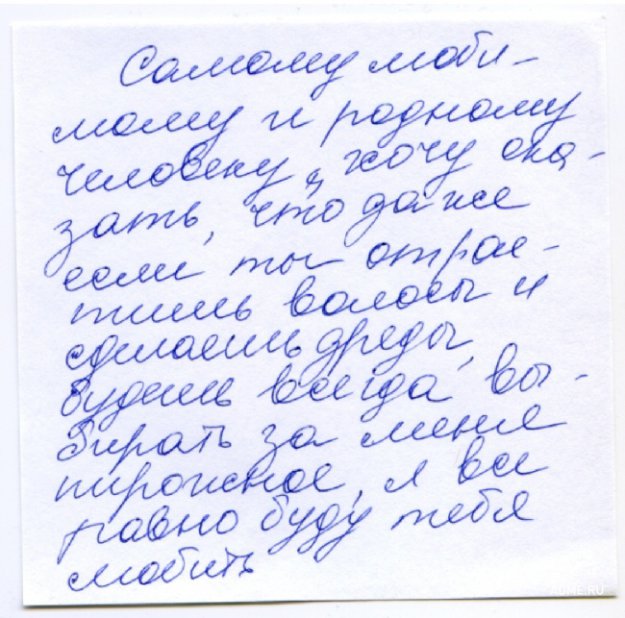 Самому люби-
мому и родному
человеку, хочу ска-
зать, что даже
если ты отрас-
тишь волосы и
сделаешь дреды,
будешь всегда вы-
бирать за меня
пирожное, я все
равно буду тебя
любить
ADME.RU